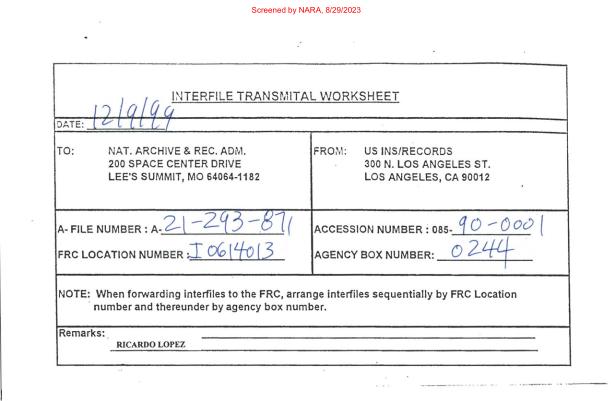 Screened by NARA, 8/29/2023
INTERFILE TRANSMITAL WORKSHEET
DATE: 12/9/99
TO: NAT. ARCHIVE & REC. ADM. FROM: US INS/RECORDS
200 SPACE CENTER DRIVE 300 N. LOS ANGELES ST.
LEE'S SUMMIT, MO 64064-1182 LOS ANGELES, CA 90012
A- FILE NUMBER : A- 21-293-871 ACCESSION NUMBER : 085- 90-0001
FRC LOCATION NUMBER: I0614013 AGENCY BOX NUMBER: 0244
NOTE: When forwarding interfiles to the FRC, arrange interfiles sequentially by FRC Location
number and thereunder by agency box number.
Remarks:
RICARDO LOPEZ